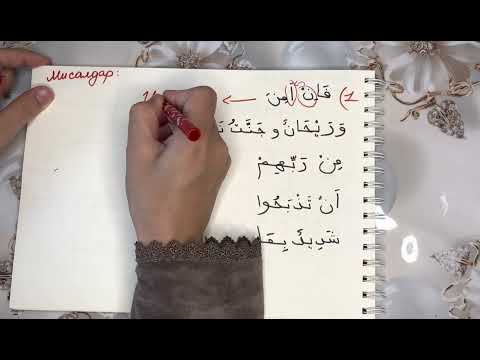 Мисалдар:
1) فَاِنْ اَمِنَ ←
وَرَيْحَانٌ وَجَنَّتُ
مِنْ رَبِّهِمْ
اَنْ تَذْبَحُوا
شَدِيدٌ